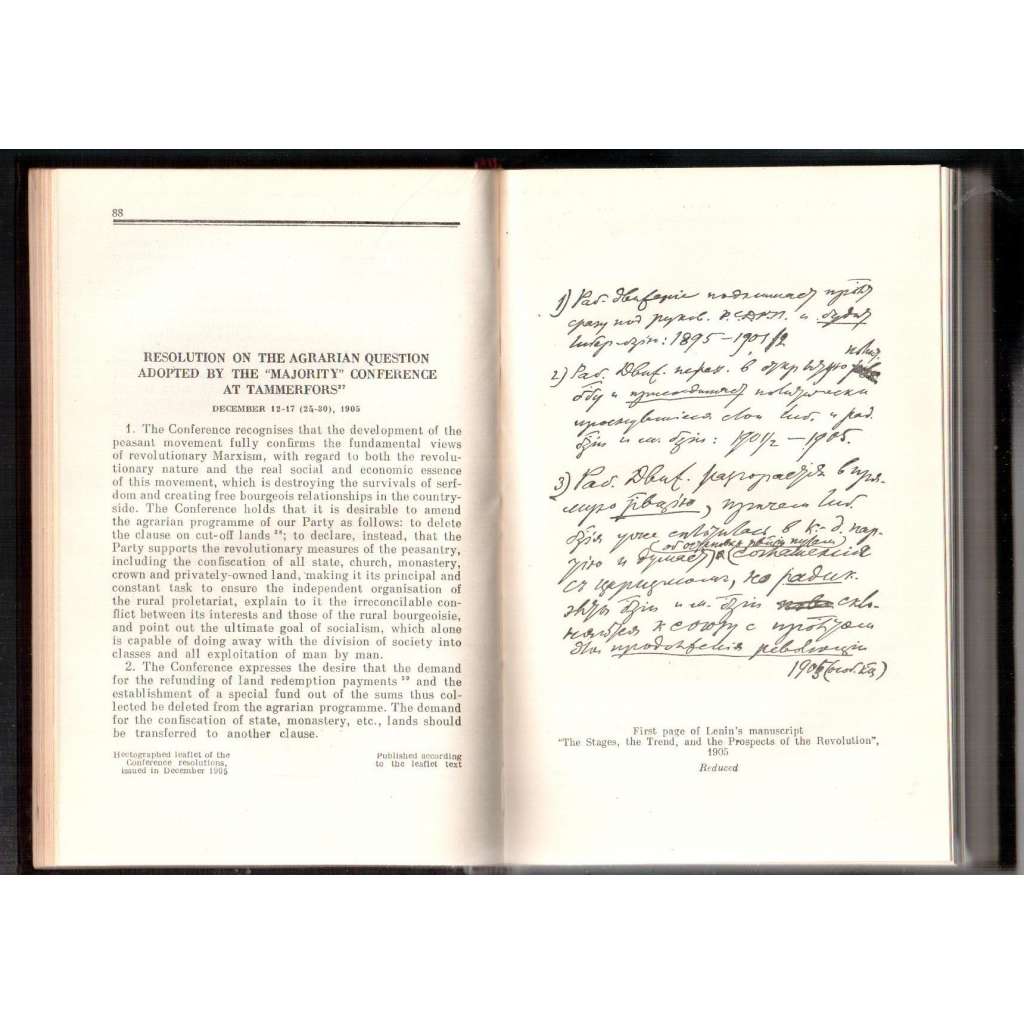 88
RESOLUTION ON THE AGRARIAN QUESTION
ADOPTED BY THE "MAJORITY" CONFERENCE
AT TAMMERFORS
DECEMBER 12-17 (25-30), 1905
1. The Conference recognises that the development of the
peasant movement fully confirms the fundamental views
of revolutionary Marxism, with regard to both the revolu-
tionary nature and the real social and economic essence
of this movement, which is destroying the survivals of serf-
dom and creating free bourgeois relationships in the country-
side. The Conference holds that it is desirable to amend
the agrarian programme of our Party as follows: to delete
the clause on cut-off lands; to declare, instead, that the
Party supports the revolutionary measures of the peasantry,
including the confiscation of all state, church, monastery,
crown and privately-owned land, making it its principal and
constant task to ensure the independent organisation of
the rural proletariat, explain to it the irreconcilable con-
flict between its interests and those of the rural bourgeoisie,
and point out the ultimate goal of socialism, which alone
is capable of doing away with the division of society into
classes and all exploitation of man by man.
2. The Conference expresses the desire that the demand
for the refunding of land redemption payments and the
establishment of a special fund out of the sums thus col-
lected be deleted from the agrarian programme. The demand
for the confiscation of state, monastery, etc., lands should
be transferred to another clause.
Hectographed leaflet of the
Conference resolutions,
issued in December 1905
Published according
to the leaflet text
1) Раб. движение поднимает
сразу под руков. Р.С.Д.Р.П. и будит
1895–1901/2
2) Раб. движ. перех. в откр.
и присоединяет политически
просыпающиеся слои либ. и рад.
и м. 1901/2–1905.
3) Раб. движ. разгорается в пря-
мую , причем либ.
уже сплотилась в к.-д. пар-
тию и думает о соглашении
съ царизмомъ, но радик.
и м. скло-
няются к союзу с
для продолжения революции
1905
First page of Lenin's manuscript
"The Stages, the Trend, and the Prospects of the Revolution",
1905
Reduced